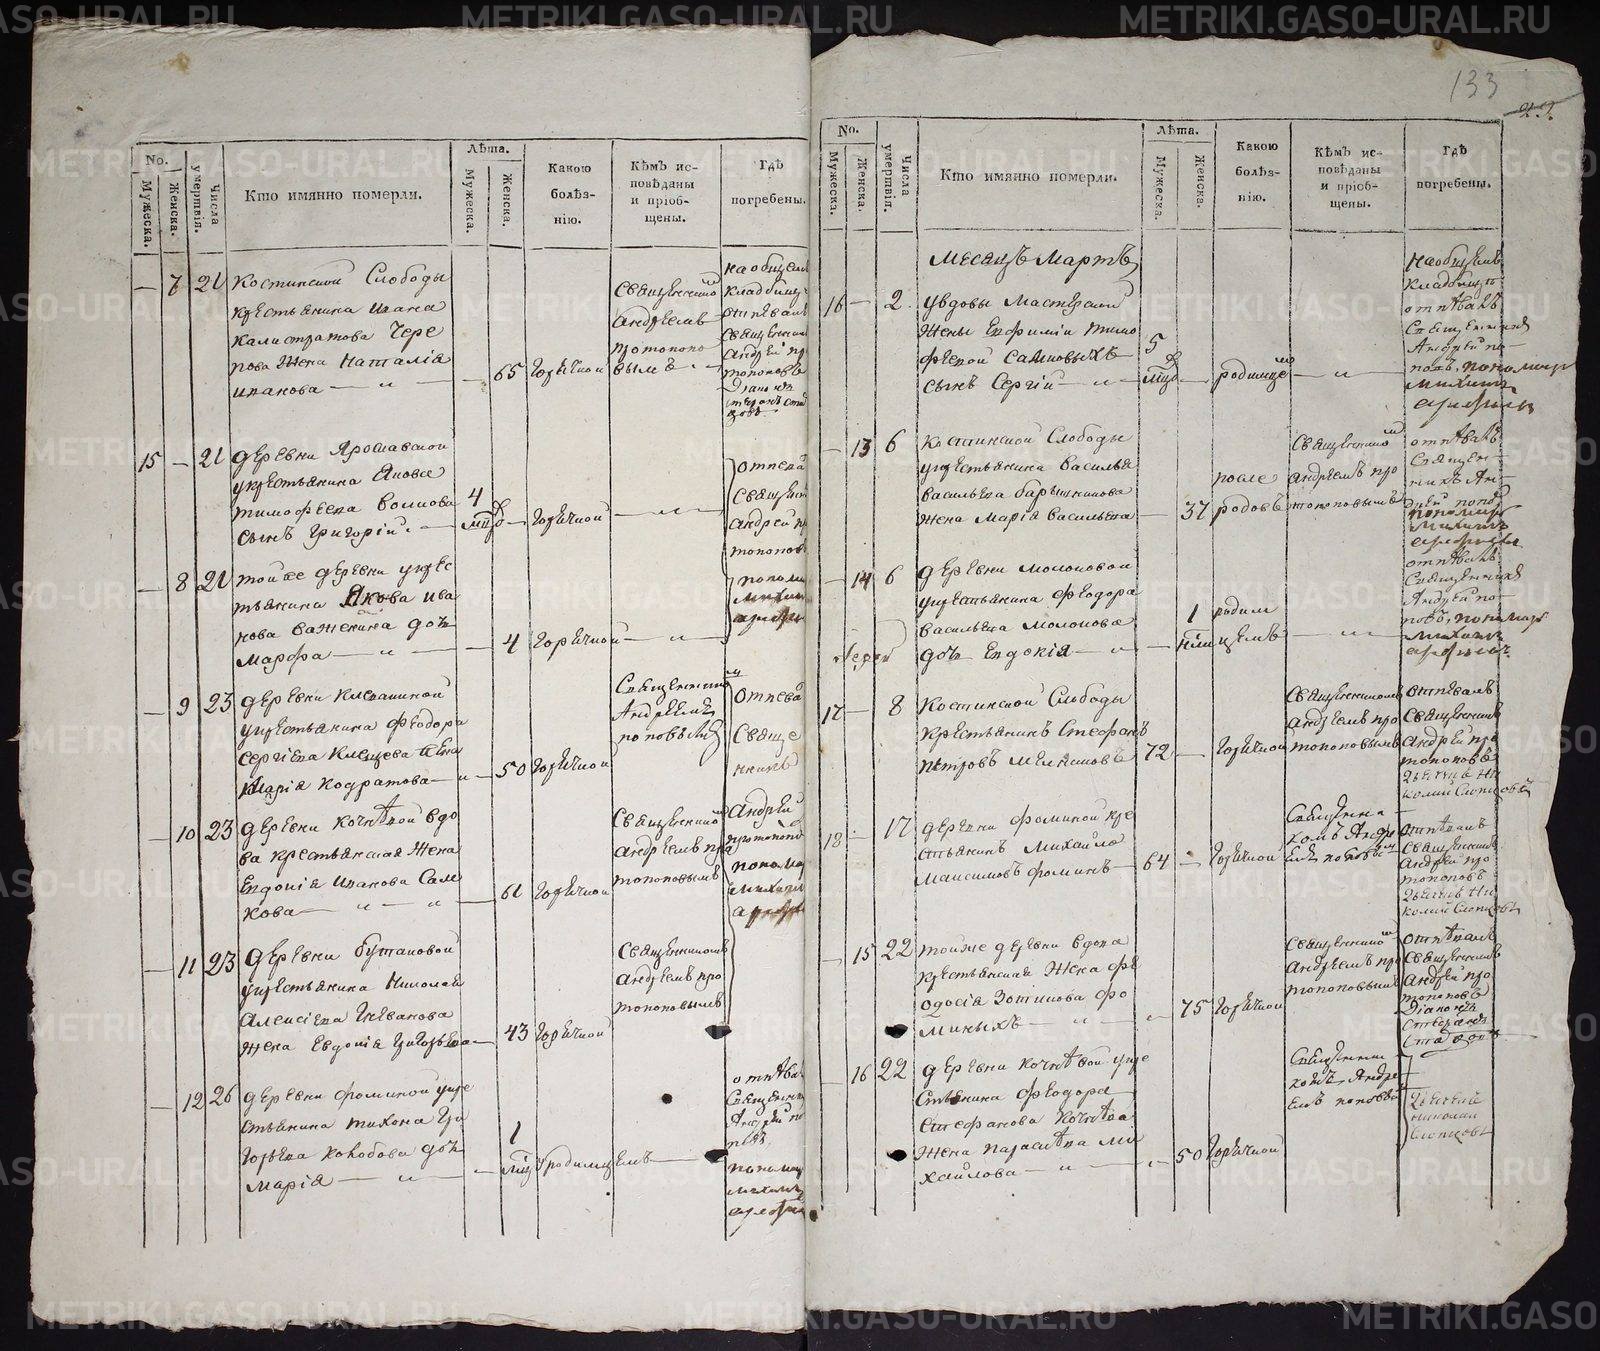 METRIKI.GASO-URAL.RU
133
29.
No.
Мужеска.
Женска.
Числа умертвія.
Кто имянно померли.
Лѣта.
Мужеска.
Женска.
Какою болѣз-нію.
Кѣмъ ис-повѣданы и пріоб-щены.
Гдѣ погребены.
— 7 21 Костинской Слободы
крестьянина Ивана
Калистратова Чере
пова жена Наталія
Иванова — „ — — 65 Горячкой
Священником
Андреемъ
Протопопо
вымъ
на общемъ
кладбище
отпевалъ
Священник
Андрей пр
отопоповъ
Діаконъ
15 — 21 деревни Ярославской
крестьянина Якова
Тимофеева Воинова
сынъ Григорій — 4 мцъ — Горячкой — „ —
отпева
Священ
Андрей п
ротопопов
— 8 21 той же деревни крес
тьянина Якова Ива
нова Важенина дочь
Марфа — „ — — 4 Горячкой — „ —
поном
Михаил
— 9 23 деревни Клевакиной
крестьянина Феодора
Сергіева Клевцева жена
Марія Кодратова — „ — 50 Горячкой
Священником
Андреемъ
поповымъ
отпева
Свяще
нникъ
— 10 23 деревни Кочнѣвой вдо
ва крестьянская жена
Евдокія Иванова Сам
кова — „ „ — 61 Горячкой
Священником
Андреемъ про
топоповымъ
Андрей
протопопо
поном
Михаил
— 11 23 деревни Бутаковой
крестьянина Николая
Алексіева
жена Евдокія Григорьева — 43 Горячкой
Священником
Андреемъ про
топоповымъ
— 12 26 деревни Фоминой кре
стьянина Тихона Гри
горьева дочь
Марія — „ — — 1 мцъ родимцемъ — „
отпѣва
Священни
Андрей по
повъ
поном
Михаил
No.
Мужеска.
Женска.
Числа умертвія.
Кто имянно померли.
Лѣта.
Мужеска.
Женска.
Какою болѣз-нію.
Кѣмъ ис-повѣданы и пріоб-щены.
Гдѣ погребены.
Месяцъ Мартъ
16 — 2 у вдовы Мастерской
жены Евфиміи Тимо
феевой Самковыхъ
сынъ Сергій — „ — 5 мцъ — родимцем — „ —
на общемъ
кладбище
отпѣвалъ
Священник
Андрей по
повъ, пономарь
Михаил
— 13 6 Костинской Слободы
крестьянина Василья
Васильева Барышникова
жена Марія Васильева — 37 после родовъ
Священником
Андреемъ про
топоповымъ
отпѣвалъ
Священ
никъ Ан
дрей попов
пономарь
Михаилъ
— 14 6 деревни Молоковой
крестьянина Феодора
Васильева Молокова
дочь Евдокія — „ — — 1 нѣли родимцемъ — „ —
отпѣвалъ
Священник
Андрей по
повъ, пономарь
Михаилъ
17 — 8 Костинской Слободы
крестьянинъ Стефанъ
Петровъ 72 — Горячкой
Священником
Андреемъ про
топоповымъ
отпѣвалъ
Священникъ
Андрей про
топоповъ
Дьячекъ Ни
колай Слопцовъ
18 — 17 деревни Фоминой кре
стьянинъ Михайло
Максимовъ Фоминъ — 64 — Горячкой
Священни
комъ Андре
емъ поповым
отпѣвалъ
Священникъ
Андрей про
топоповъ
Дьячекъ Ни
колай Слопцовъ
— 15 22 той же деревни вдова
крестьянская жена Фе
одосія Зотикова Фо
миныхъ — „ — „ — 75 Горячкой
Священником
Андреемъ про
топоповымъ
отпѣвалъ
Священникъ
Андрей про
топоповъ
Діаконъ
— 16 22 деревни Кочнѣвой кре
стьянина Феодора
Стефанова Кочнѣва
жена Парасковья Ми
хайлова — „ — „ — 50 Горячкой
Священни
комъ Андре
емъ поповым
Дьячекъ
Николай
Слопцовъ